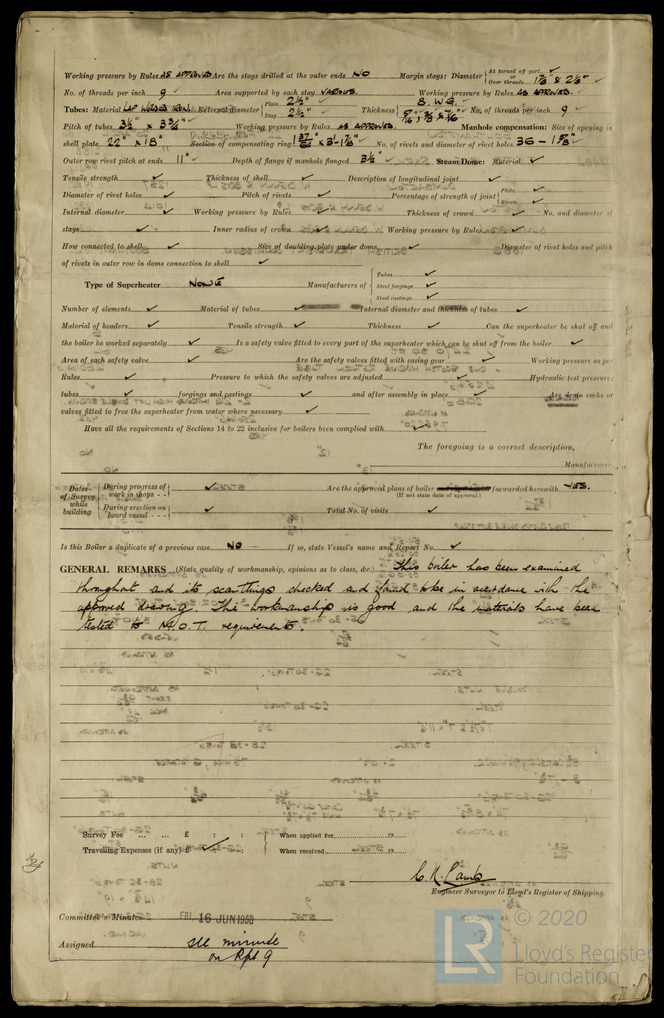 Working pressure by Rules AS APPROVED Are the stays drilled at the outer ends NO Margin stays: Diameter { At turned off part, ✓ or Over threads 1⅞" & 2⅛" ✓
No. of threads per inch 9 ✓ Area supported by each stay VARIOUS. Working pressure by Rules AS APPROVED. ✓
Tubes: Material LAP WELDED IRON External diameter { Plain 2½" ✓ Stay 2½" ✓ Thickness { 8. W.G. ✓ 5/16", 3/8" & 7/16" ✓ No. of threads per inch 9 ✓
Pitch of tubes 3½" x 3¾" ✓ Working pressure by Rules AS APPROVED. Manhole compensation: Size of opening in
shell plate 22" x 18" Section of compensating ring No. of rivets and diameter of rivet holes 36 -
Outer row rivet pitch at ends 11" ✓ Depth of flange if manhole flanged 3½" ✓ Steam Dome: Material ✓
Tensile strength ✓ Thickness of shell ✓ Description of longitudinal joint ✓
Diameter of rivet holes ✓ Pitch of rivets ✓ Percentage of strength of joint { Plate ✓ Rivets ✓
Internal diameter ✓ Working pressure by Rules ✓ Thickness of crown ✓ No. and diameter of
stays ✓ Inner radius of crown ✓ Working pressure by Rules ✓
How connected to shell ✓ Size of doubling plate under dome ✓ Diameter of rivet holes and pitch
of rivets in outer row in dome connection to shell ✓
Type of Superheater NONE Manufacturers of { Tubes ✓ Steel forgings ✓ Steel castings ✓
Number of elements ✓ Material of tubes ✓ Internal diameter and thickness of tubes ✓
Material of headers ✓ Tensile strength ✓ Thickness ✓ Can the superheater be shut off and
the boiler be worked separately ✓ Is a safety valve fitted to every part of the superheater which can be shut off from the boiler ✓
Area of each safety valve ✓ Are the safety valves fitted with easing gear ✓ Working pressure as per
Rules ✓ Pressure to which the safety valves are adjusted ✓ Hydraulic test pressure:
tubes ✓ forgings and castings ✓ and after assembly in place ✓ Are drain cocks or
valves fitted to free the superheater from water where necessary ✓
Have all the requirements of Sections 14 to 22 inclusive for boilers been complied with
The foregoing is a correct description,
Manufacturer
Dates of Survey while building { During progress of work in shops - - ✓ Are the approved plans of boiler forwarded herewith YES.
(If not state date of approval.)
During erection on board vessel - - - ✓ Total No. of visits ✓
Is this Boiler a duplicate of a previous case NO - If so, state Vessel's name and Report No. ✓
GENERAL REMARKS (State quality of workmanship, opinions as to class, &c.) This boiler has been examined
throughout and its scantlings checked and found to be in accordance with the
approved drawing. The workmanship is good and the materials have been
tested to M.O.T. requirements.
Survey Fee ... ... £ : : When applied for, 19
Travelling Expenses (if any) £ ✓ : : When received 19
C. K. Lamb
Engineer Surveyor to Lloyd's Register of Shipping.
Committee's Minute FRI. 16 JUN 1950
Assigned see minute
on Rpt 9
© 2020
LR Lloyd's Register
Foundation